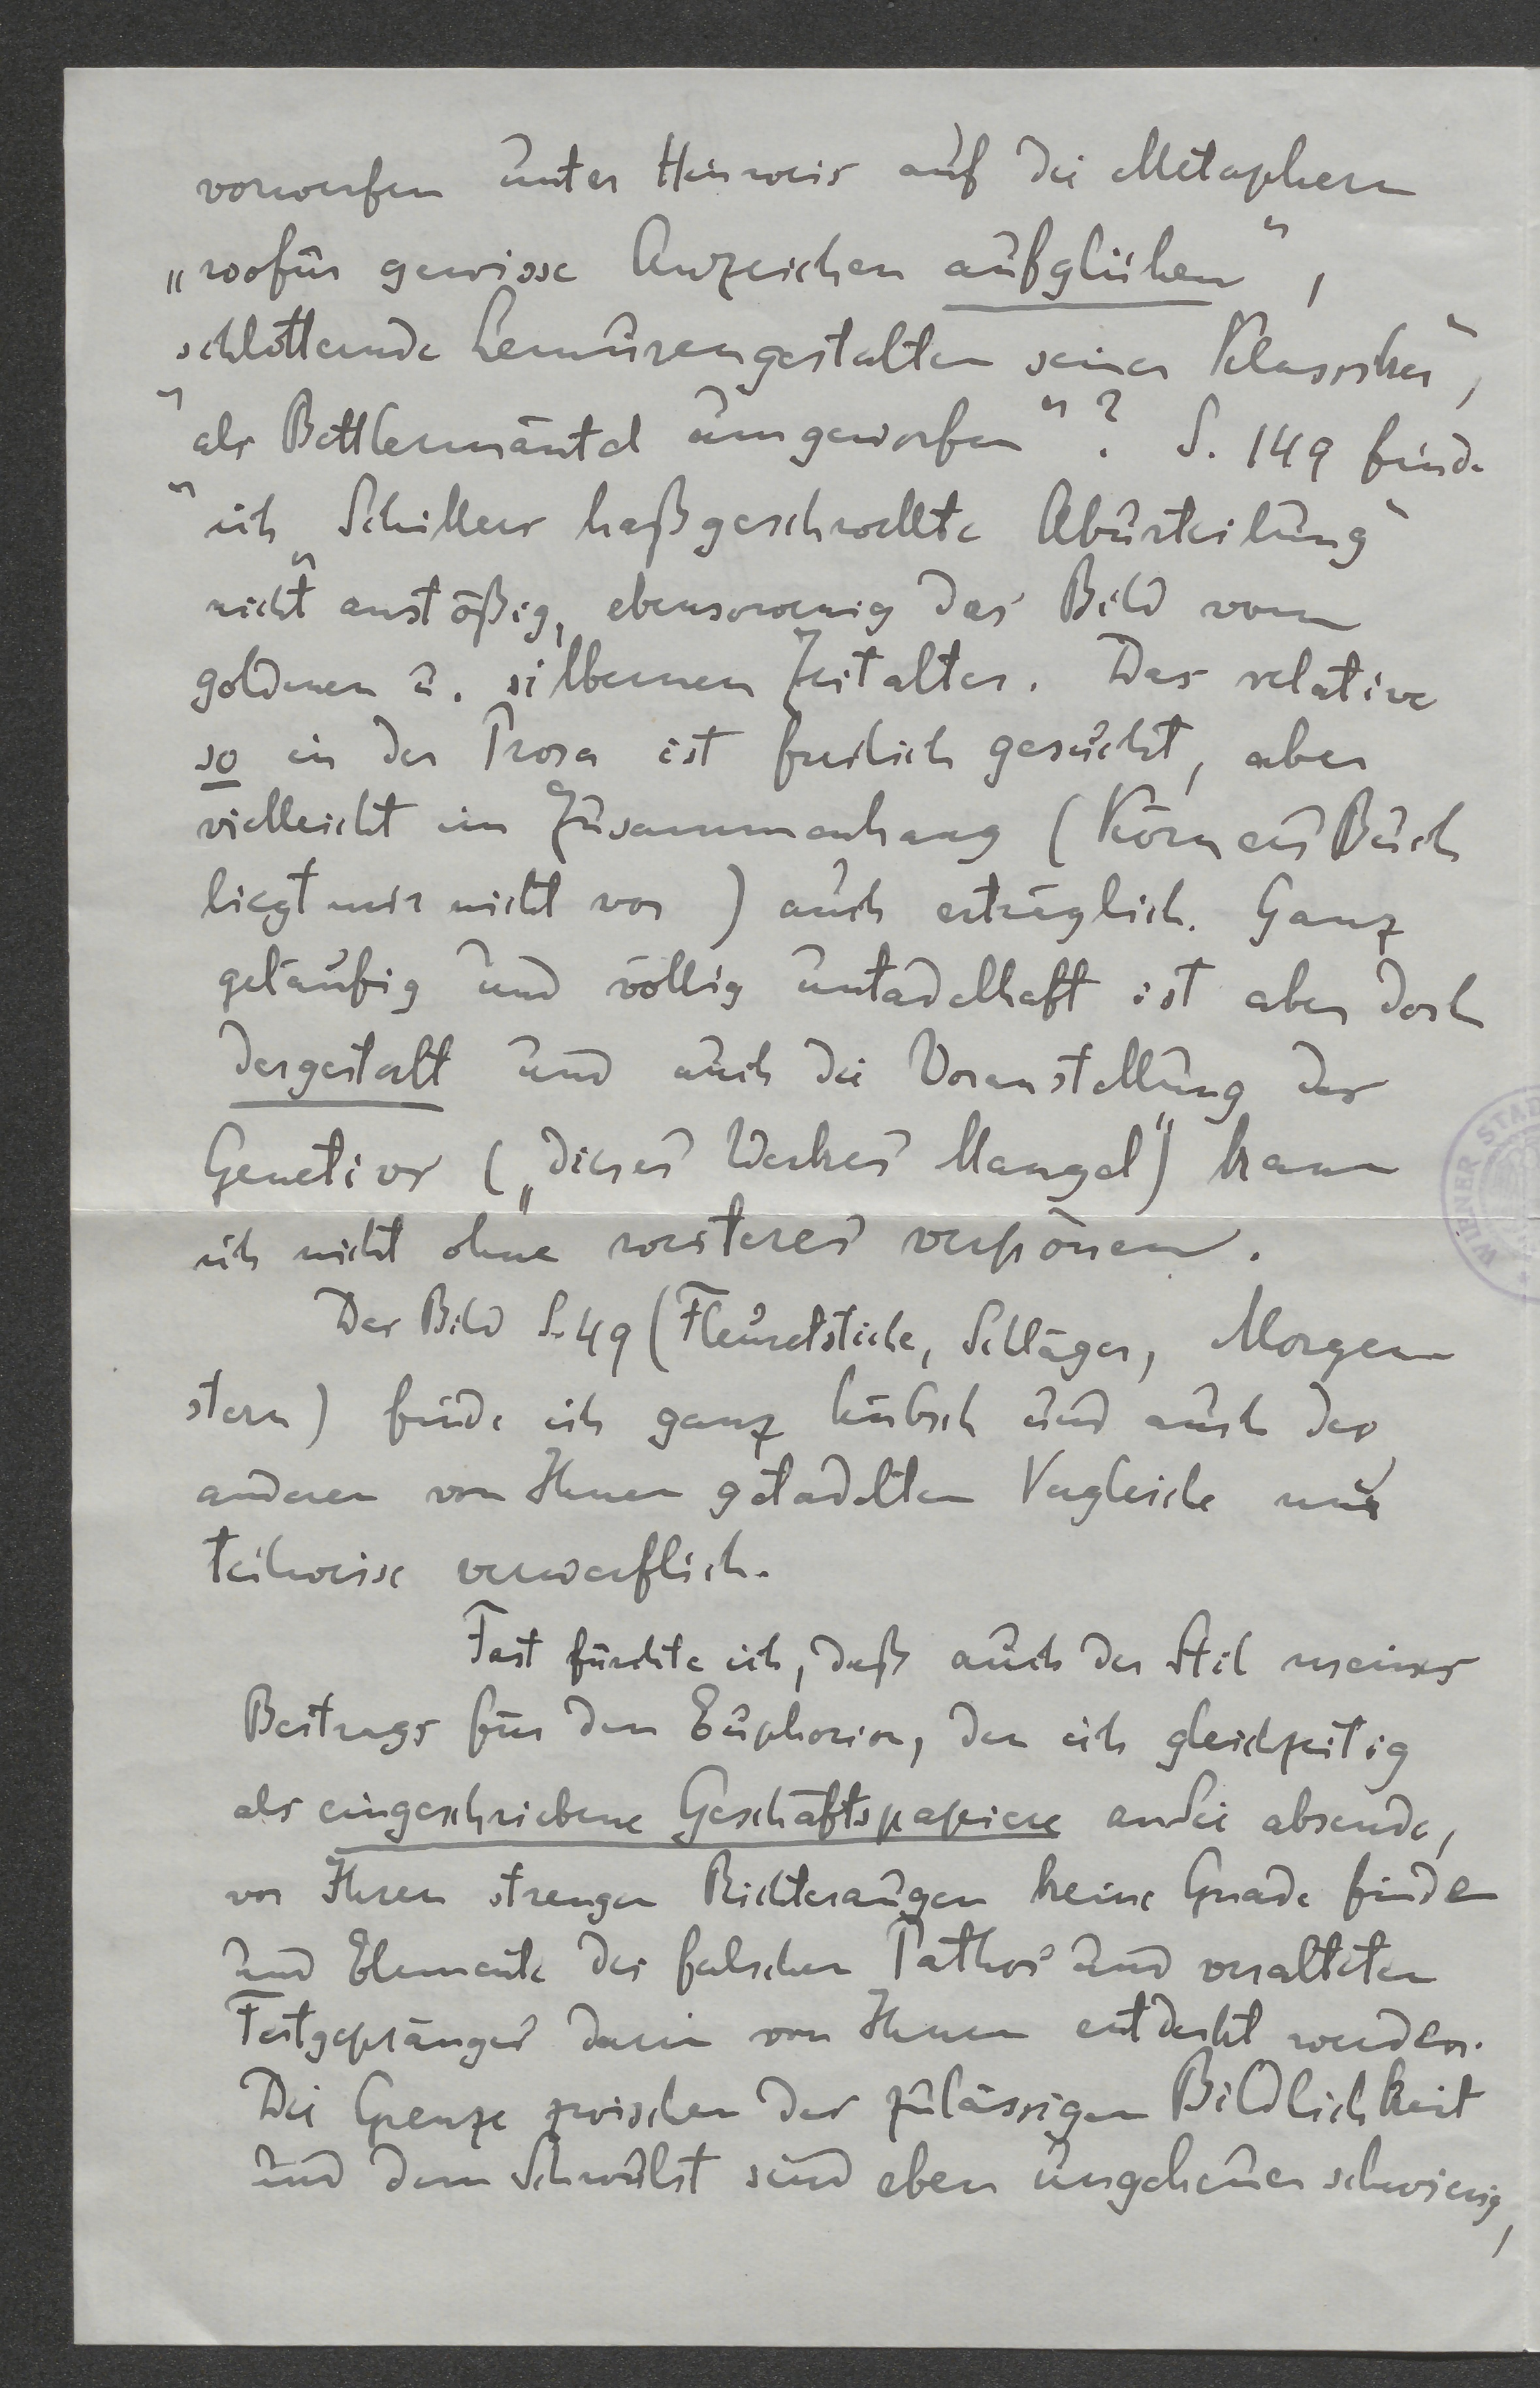 vorwerfen unter Hinweis auf die Metaphern
„wofür gewisse Anzeichen aufglühen“,
„schlotternde Lemurengestalten seiner Klassiker“,
„als Bettlermäntel umgeworfen“? S. 149 finde
ich „Schillers haßgeschwellte Aburteilung“
nicht anstößig, ebensowenig das Bild vom
goldenen u. silbernen Zeitalter. Das relative
so in der Prosa ist freilich gesucht, aber
vielleicht im Zusammenhang (Körners Buch
liegt mir nicht vor) auch erträglich. Ganz
geläufig und völlig untadelhaft ist aber doch
dergestalt und auch die Voranstellung des
Genetivs („dieses Werkes Mangel“) kann
ich nicht ohne weiteres verpönen.
Das Bild S. 49 (Fleuretstiche, Schläger, Morgen
stern) finde ich ganz hübsch und auch die
anderen von Ihnen getadelten Vergleiche nur
teilweise verwerflich.
Fast fürchte ich, daß auch der Stil meines
Beitrags für den Euphorion, den ich gleichzeitig
als eingeschriebene Geschäftspapiere an Sie absende,
vor Ihren strengen Richteraugen keine Gnade finden
und Elemente des falschen Pathos und veralteten
Festgepränges darin von Ihnen entdeckt werden.
Die Grenze zwischen der zulässigen Bildlichkeit
und dem Schwulst sind eben ungeheuer schwierig,
WIENER STAD